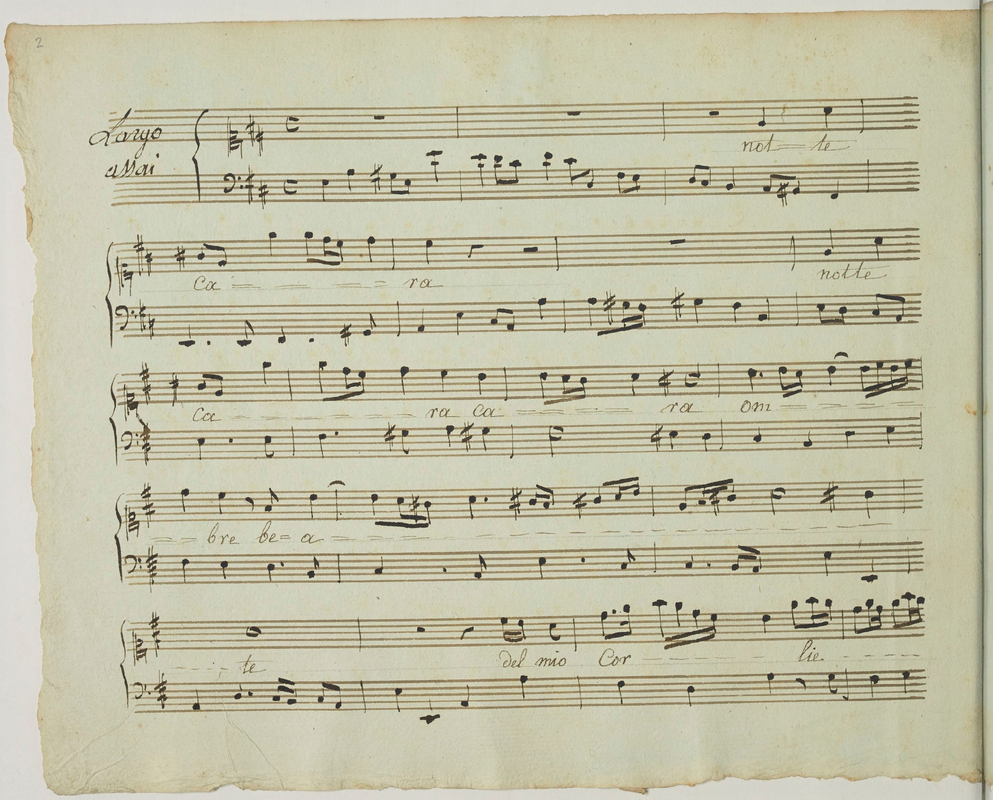 2
Largo
assai
not te
Ca ra
notte
Ca ra Ca ra om
bre be= a
te del mio Cor lie